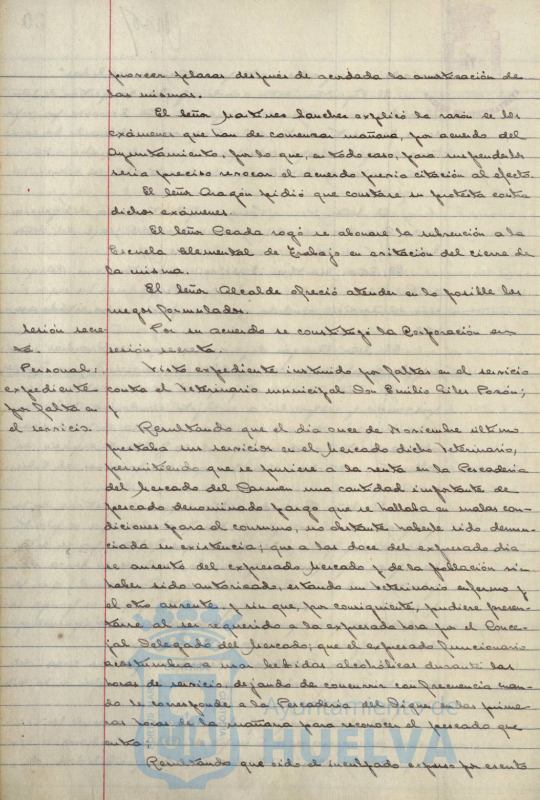 proveer plazas después de acordada la amortización de
las mismas.
El Señor Martínez Sanchez explicó la razón de los
exámenes que han de comenzar mañana, por acuerdo del
Ayuntamiento, por lo que, en todo caso, para suspenderlos
sería preciso revocar el acuerdo previa citación al efecto.
El Señor Aragón pidió que constase su protesta contra
dichos exámenes.
El Señor Ceada rogó se abonase la subvención a la
Escuela Elemental de Trabajo en evitación del cierre de
la misma.
El Señor Alcalde ofreció atender en lo posible los
ruegos formulados.
Sesión secre-
ta.
Por su acuerdo se constituyó la Corporación en
sesión secreta.
Personal:
expediente
por falta en
el servicio.
Visto expediente instruido por faltas en el servicio
contra el Veterinario municipal Don Emilio Giles Pozón;
y
Resultando que el día once de Noviembre último
prestaba sus servicios en el Mercado dicho Veterinario,
permitiendo que se pusiere a la venta en la Pescadería
del Mercado del Carmen una cantidad importante de
pescado denominado pargo que se hallaba en malas con-
diciones para el consumo, no obstante haberle sido denun-
ciada su existencia; que a las doce del expresado día
se ausentó del expresado Mercado y de la población sin
haber sido autorizado, estando un Veterinario enfermo y
el otro ausente, y sin que, por consiguiente, pudiere presen-
tarse al ser requerido a la expresada hora por el Conce-
jal Delegado del Mercado; que el expresado funcionario
acostumbra a usar bebidas alcohólicas durante las
horas de servicio, dejando de concurrir con frecuencia cuan-
do le corresponde a la Pescadería del Dique en las prime-
ras horas de la mañana para reconocer el pescado que
entra.
Resultando que oído el inculpado expuso por escrito
Ayuntamiento de
HUELVA